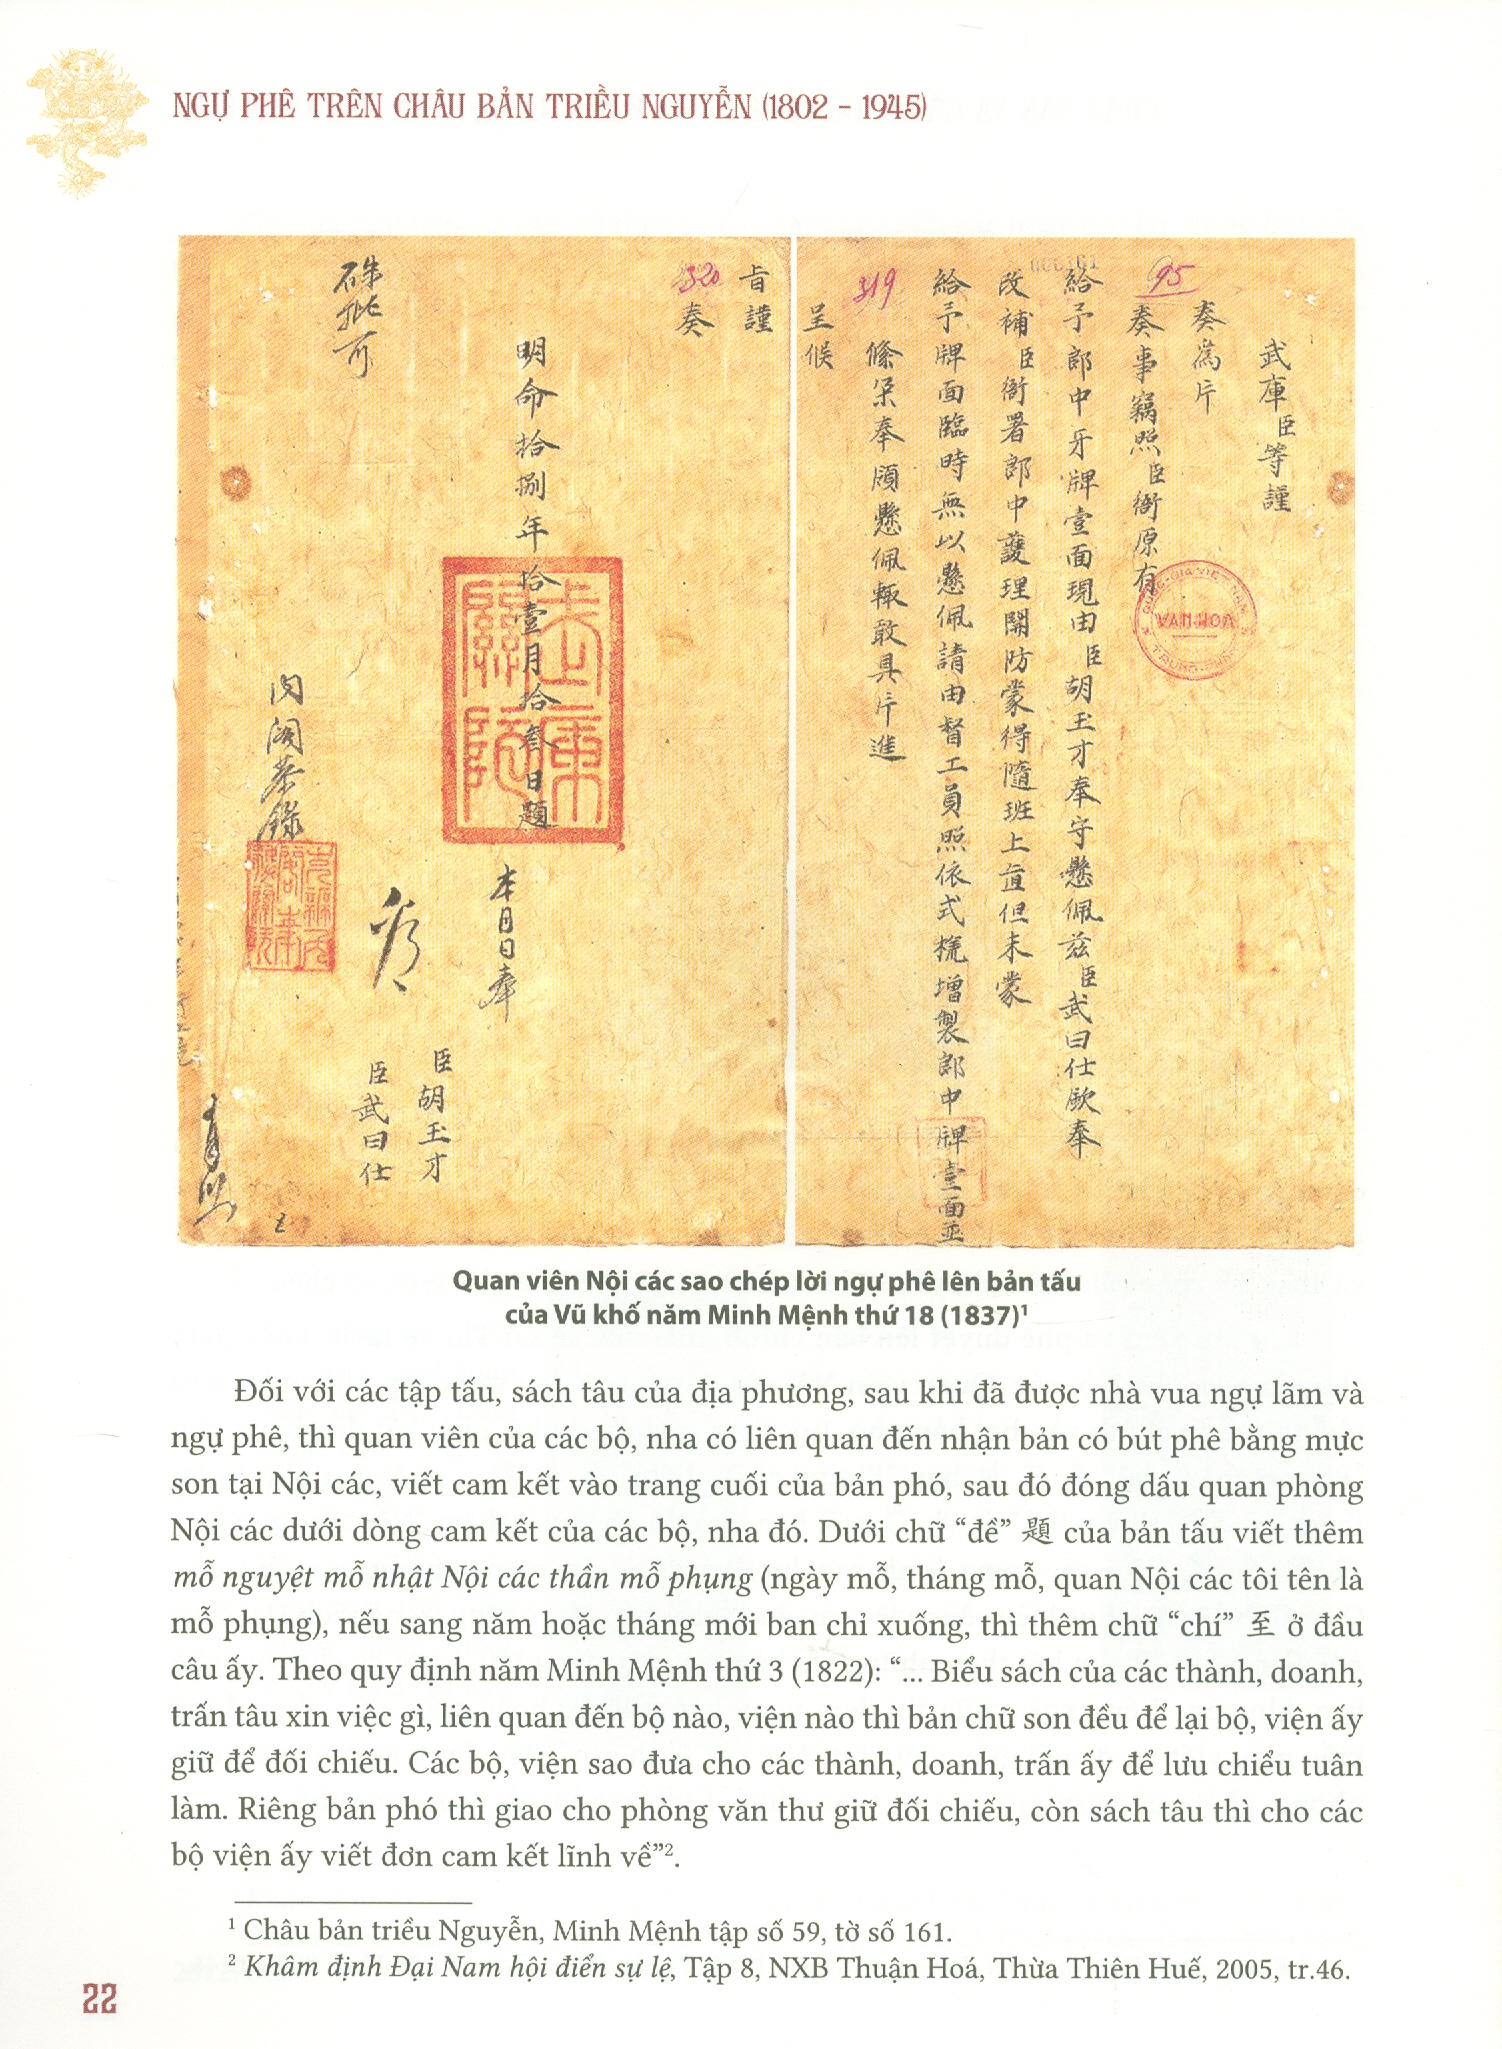 NGỰ PHÊ TRÊN CHÂU BẢN TRIỀU NGUYỄN (1802 - 1945)
武庫臣等謹
奏為片
95
奏事竊照臣衙原有
給予郎中牙牌壹面現由臣胡玉才奉守懸佩茲臣武曰仕欽奉
改補臣衙署郎中護理關防蒙得隨班上直但未蒙
給予牌面臨時無以懸佩請由督工員照依式樣增製郎中牌壹面並
319
絛朶奉頒懸佩輒敢具片進
呈候
旨謹
320
奏
明命拾捌年拾壹月拾叁日題
本月日奉
臣胡玉才
臣武曰仕
硃批可
內閣恭錄
VAN-HOA
Quan viên Nội các sao chép lời ngự phê lên bản tấu
của Vũ khố năm Minh Mệnh thứ 18 (1837)¹
Đối với các tập tấu, sách tâu của địa phương, sau khi đã được nhà vua ngự lãm và
ngự phê, thì quan viên của các bộ, nha có liên quan đến nhận bản có bút phê bằng mực
son tại Nội các, viết cam kết vào trang cuối của bản phó, sau đó đóng dấu quan phòng
Nội các dưới dòng cam kết của các bộ, nha đó. Dưới chữ “đề” 題 của bản tấu viết thêm
mỗ nguyệt mỗ nhật Nội các thần mỗ phụng (ngày mỗ, tháng mỗ, quan Nội các tôi tên là
mỗ phụng), nếu sang năm hoặc tháng mới ban chỉ xuống, thì thêm chữ “chí” 至 ở đầu
câu ấy. Theo quy định năm Minh Mệnh thứ 3 (1822): “... Biểu sách của các thành, doanh,
trấn tâu xin việc gì, liên quan đến bộ nào, viện nào thì bản chữ son đều để lại bộ, viện ấy
giữ để đối chiếu. Các bộ, viện sao đưa cho các thành, doanh, trấn ấy để lưu chiểu tuân
làm. Riêng bản phó thì giao cho phòng văn thư giữ đối chiếu, còn sách tâu thì cho các
bộ viện ấy viết đơn cam kết lĩnh về”².
¹ Châu bản triều Nguyễn, Minh Mệnh tập số 59, tờ số 161.
² Khâm định Đại Nam hội điển sự lệ, Tập 8, NXB Thuận Hoá, Thừa Thiên Huế, 2005, tr.46.
22